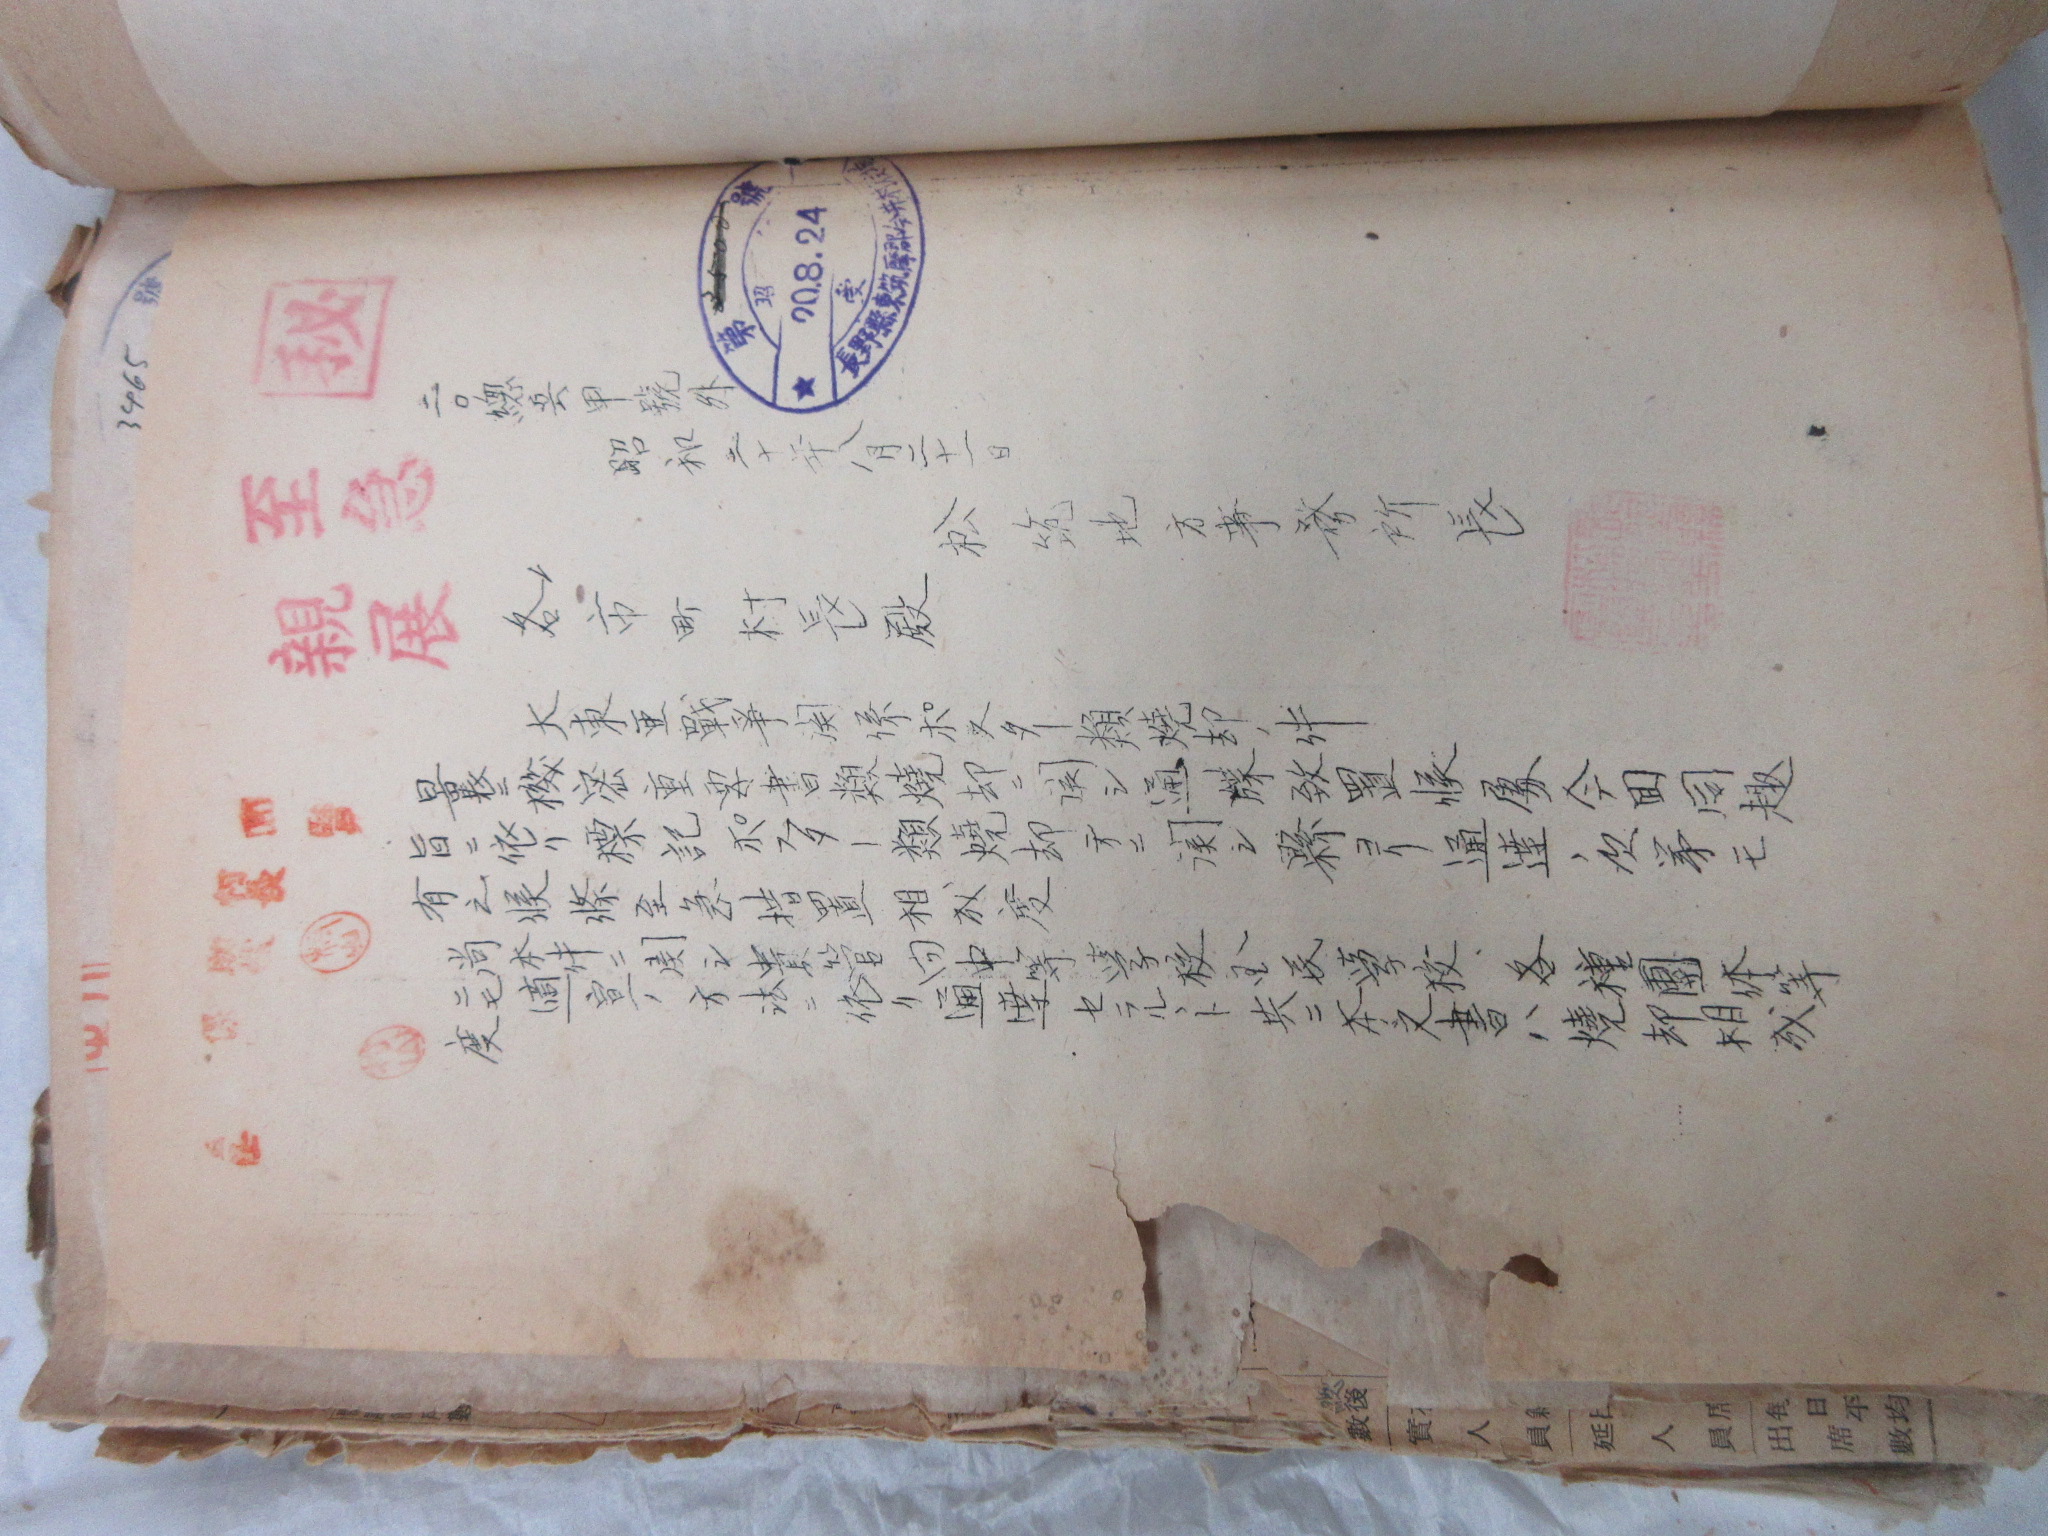 3465
號
秘
至急
親展
二〇總兵甲號外
昭和二十年八月二十一日
第 3500 號
昭
20.8.24
受
長野縣東筑摩郡今井村役場
松筑地方事務所長
各市町村長殿
大東亜戰爭関係ポスター類燒却ノ件
曩ニ機密重要書類燒却ニ関シ通牒致置候處今回同趣
旨ニ依リ標記ポスター類燒却方ニ関シ縣ヨリ通達ノ次第モ
有之候條至急措置相成度
尚本件ニ関シ貴管内中等學校国民學校、各種團体等
ニモ適宜ノ方法ニ依リ通達セラルヽト共ニ本文書ハ燒却相成
度
村長
係
後
數實人員延人員出席數
毎日平均